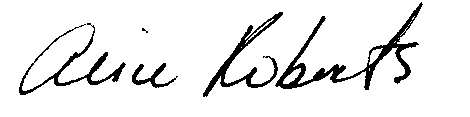 Alice Roberts